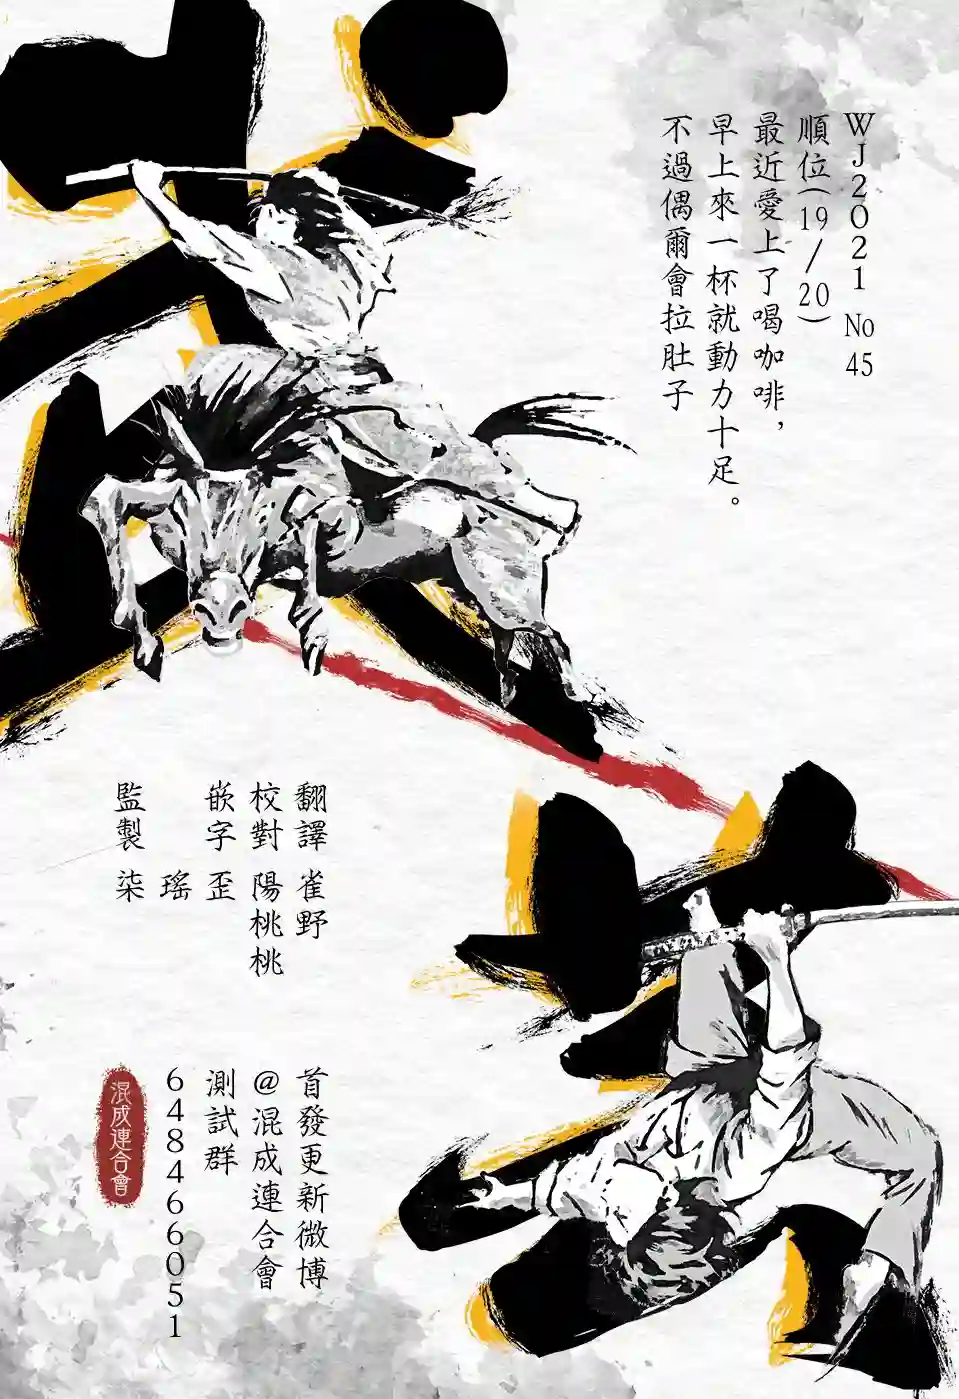 WJ2021 No 45
順位(19/20)
最近愛上了喝咖啡，
早上來一杯就動力十足。
不過偶爾會拉肚子
翻譯 雀野
校對 陽桃桃
嵌字 歪
瑤
監製 柒
首發更新微博
@混成連合會
測試群
648466051
混成連合會